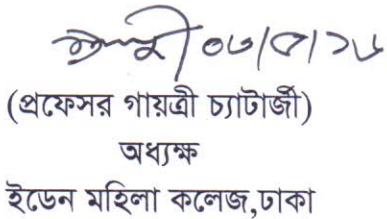 ০৬/৫/১৮
(প্রফেসর গায়ত্রী চ্যাটার্জী)
অধ্যক্ষ
ইডেন মহিলা কলেজ,ঢাকা